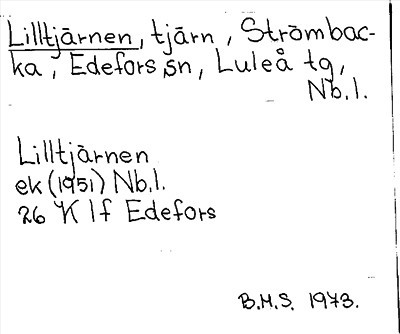 Lilltjärnen, tjärn, Strömbac-
ka, Edefors sn, Luleå tg,
Nb.l.
Lilltjärnen
ek (1951) Nb.l.
26 K 1f Edefors
B.M.S. 1973.